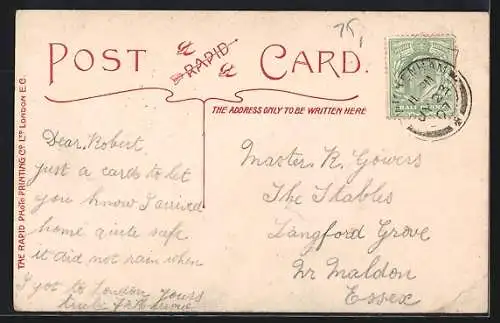 POST CARD.
RAPID
75
THE ADDRESS ONLY TO BE WRITTEN HERE
THE RAPID PHOTO PRINTING CO LTD LONDON E.C.
Dear Robert
just a card to let
you know I arrived
home quite safe
it did not rain when
I got to London yours
truly
Master R. Gowers
The Stables
Langford Grove
Nr Maldon
Essex